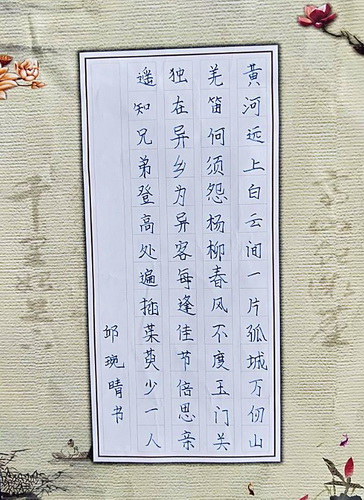 黄河远上白云间一片孤城万仞山
羌笛何须怨杨柳春风不度玉门关
独在异乡为异客每逢佳节倍思亲
遥知兄弟登高处遍插茱萸少一人
琬晴书